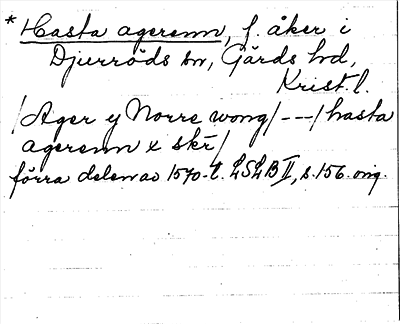 * Hasta agerenn, f. åker i
Djurröds sn, Gärds hd,
Krist. l.
/Ager y Norre wong/ --- /hasta
agerenn x skr/
förra delen av 1570-t. LSLB II, s. 156. orig.